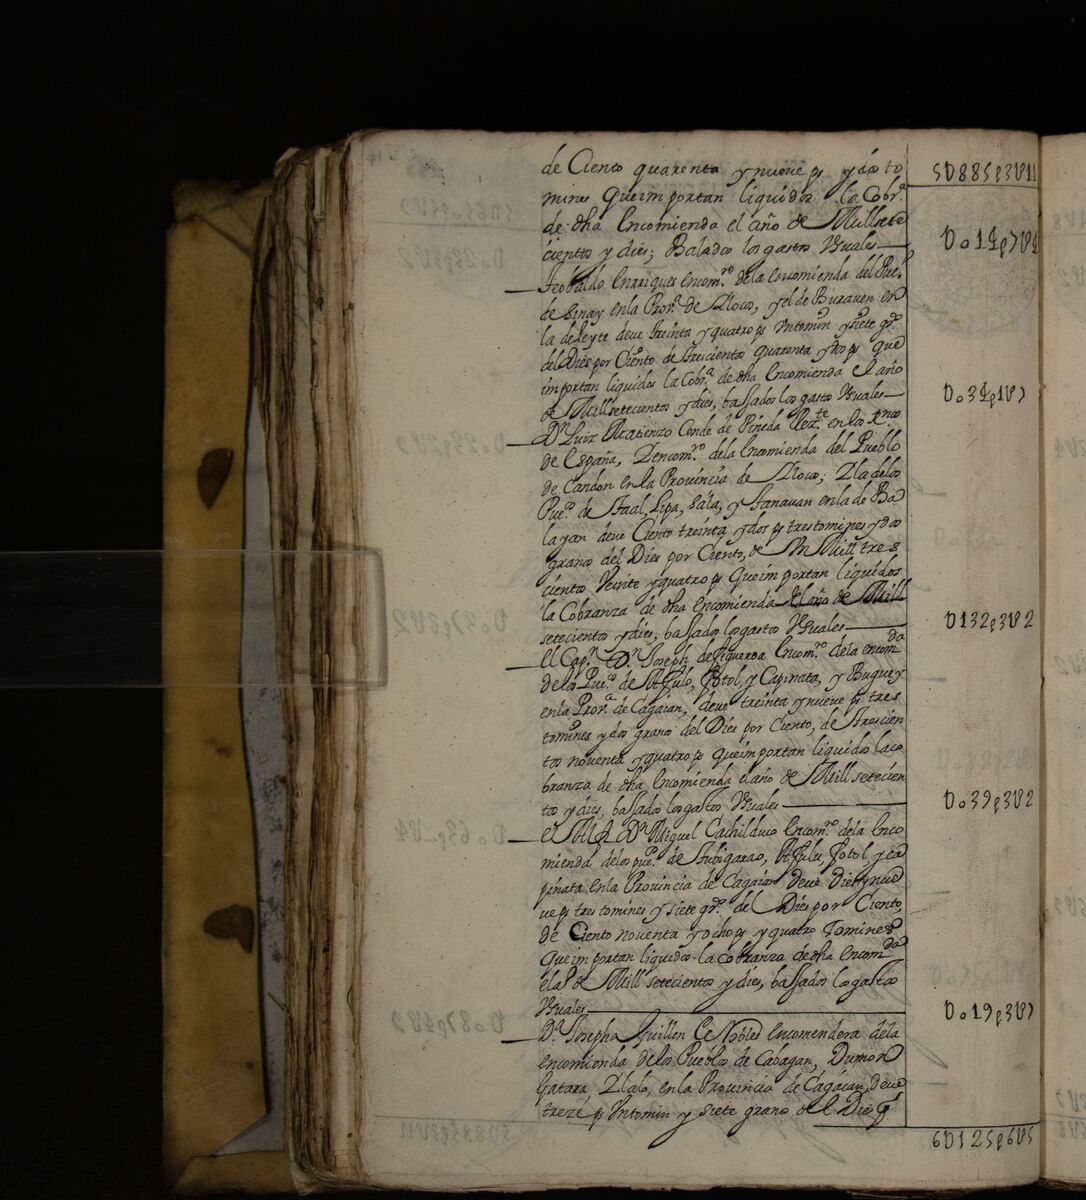 de Ciento quarenta y nueve ps y dos to 5U885p3U11
mines Que importan liquidos la Cobr.ª
de dha Encomienda el año de Mill sete
cientos y dies; Baxados los gastos Usuales — U014p7U4
Teobaldo Enrriques encom.ro de la encomienda del Pue.º
de Sinay en la Prov.ª de Ylocos, y el de Burauen en
la de Leyte deve treinta y quatro ps Un tomin y siete gr.s
del Dies por Ciento de Trescientos quarenta y dos ps que
importan liquidos la Cobr.ª de dha Encomienda el año
de Mill setecientos y dies, baxados los gastos Usuales — U034p1U7
D.n Luiz Atatienzo Conde de Pineda Rez.te en los R.nos
de España, Y encom.ro de la Encomienda del Pueblo
de Candon en la Provincia de Ylocos; Y la de los
Pue.os de Taal, Lipa, Sala, y Tanauan en la de Ba
layan deve Ciento treinta y dos ps tres tomines y dos
granos del Dies por Ciento, de Un Mill tres
cientos Veinte y quatro ps Que importan liquidos
la Cobranza de dha encomienda el año de Mill
setecientos y dies, baxados los gastos Usuales — U132p3U2
El Cap.n D.n Joseph de Figueroa Encom.ro de la encom.da
de los Pue.os de Affulo, Fotol, y Capinata, y Buguey
en la Prov.ª de Cagaian, deve treinta y nueve ps tres
tomines y dos granos del Dies por Ciento, de Trescien
tos noventa y quatro ps que importan liquidos la co
branza de dha Encomienda el año de Mill setecien
tos y dies, baxados los gastos Usuales — U039p3U2
el D.n Miguel Cachilduco Encom.ro de la Enco
mienda de los pue.os de Tubigarao, Affulu, Fotol, y ca
pinata en la Provincia de Cagaian Deve Diez y nue
ve ps tres tomines y siete gr.s del Dies por Ciento,
de Ciento noventa y ocho ps y quatro Tomines
Que importan liquidos la cobranza de dha Encom.da
el a.º de Mill setecientos y dies, baxados los gastos
Usuales — U019p3U7
D.ª Josepha Guillen Ce Robles Encomendera de la
encomienda de los Pueblos de Cabagan, Dumon
Gatara, Y lalo, en la Provincia de Cagaian, deve
treze ps Un tomin y siete granos del Dies p.r
6U125p6U5